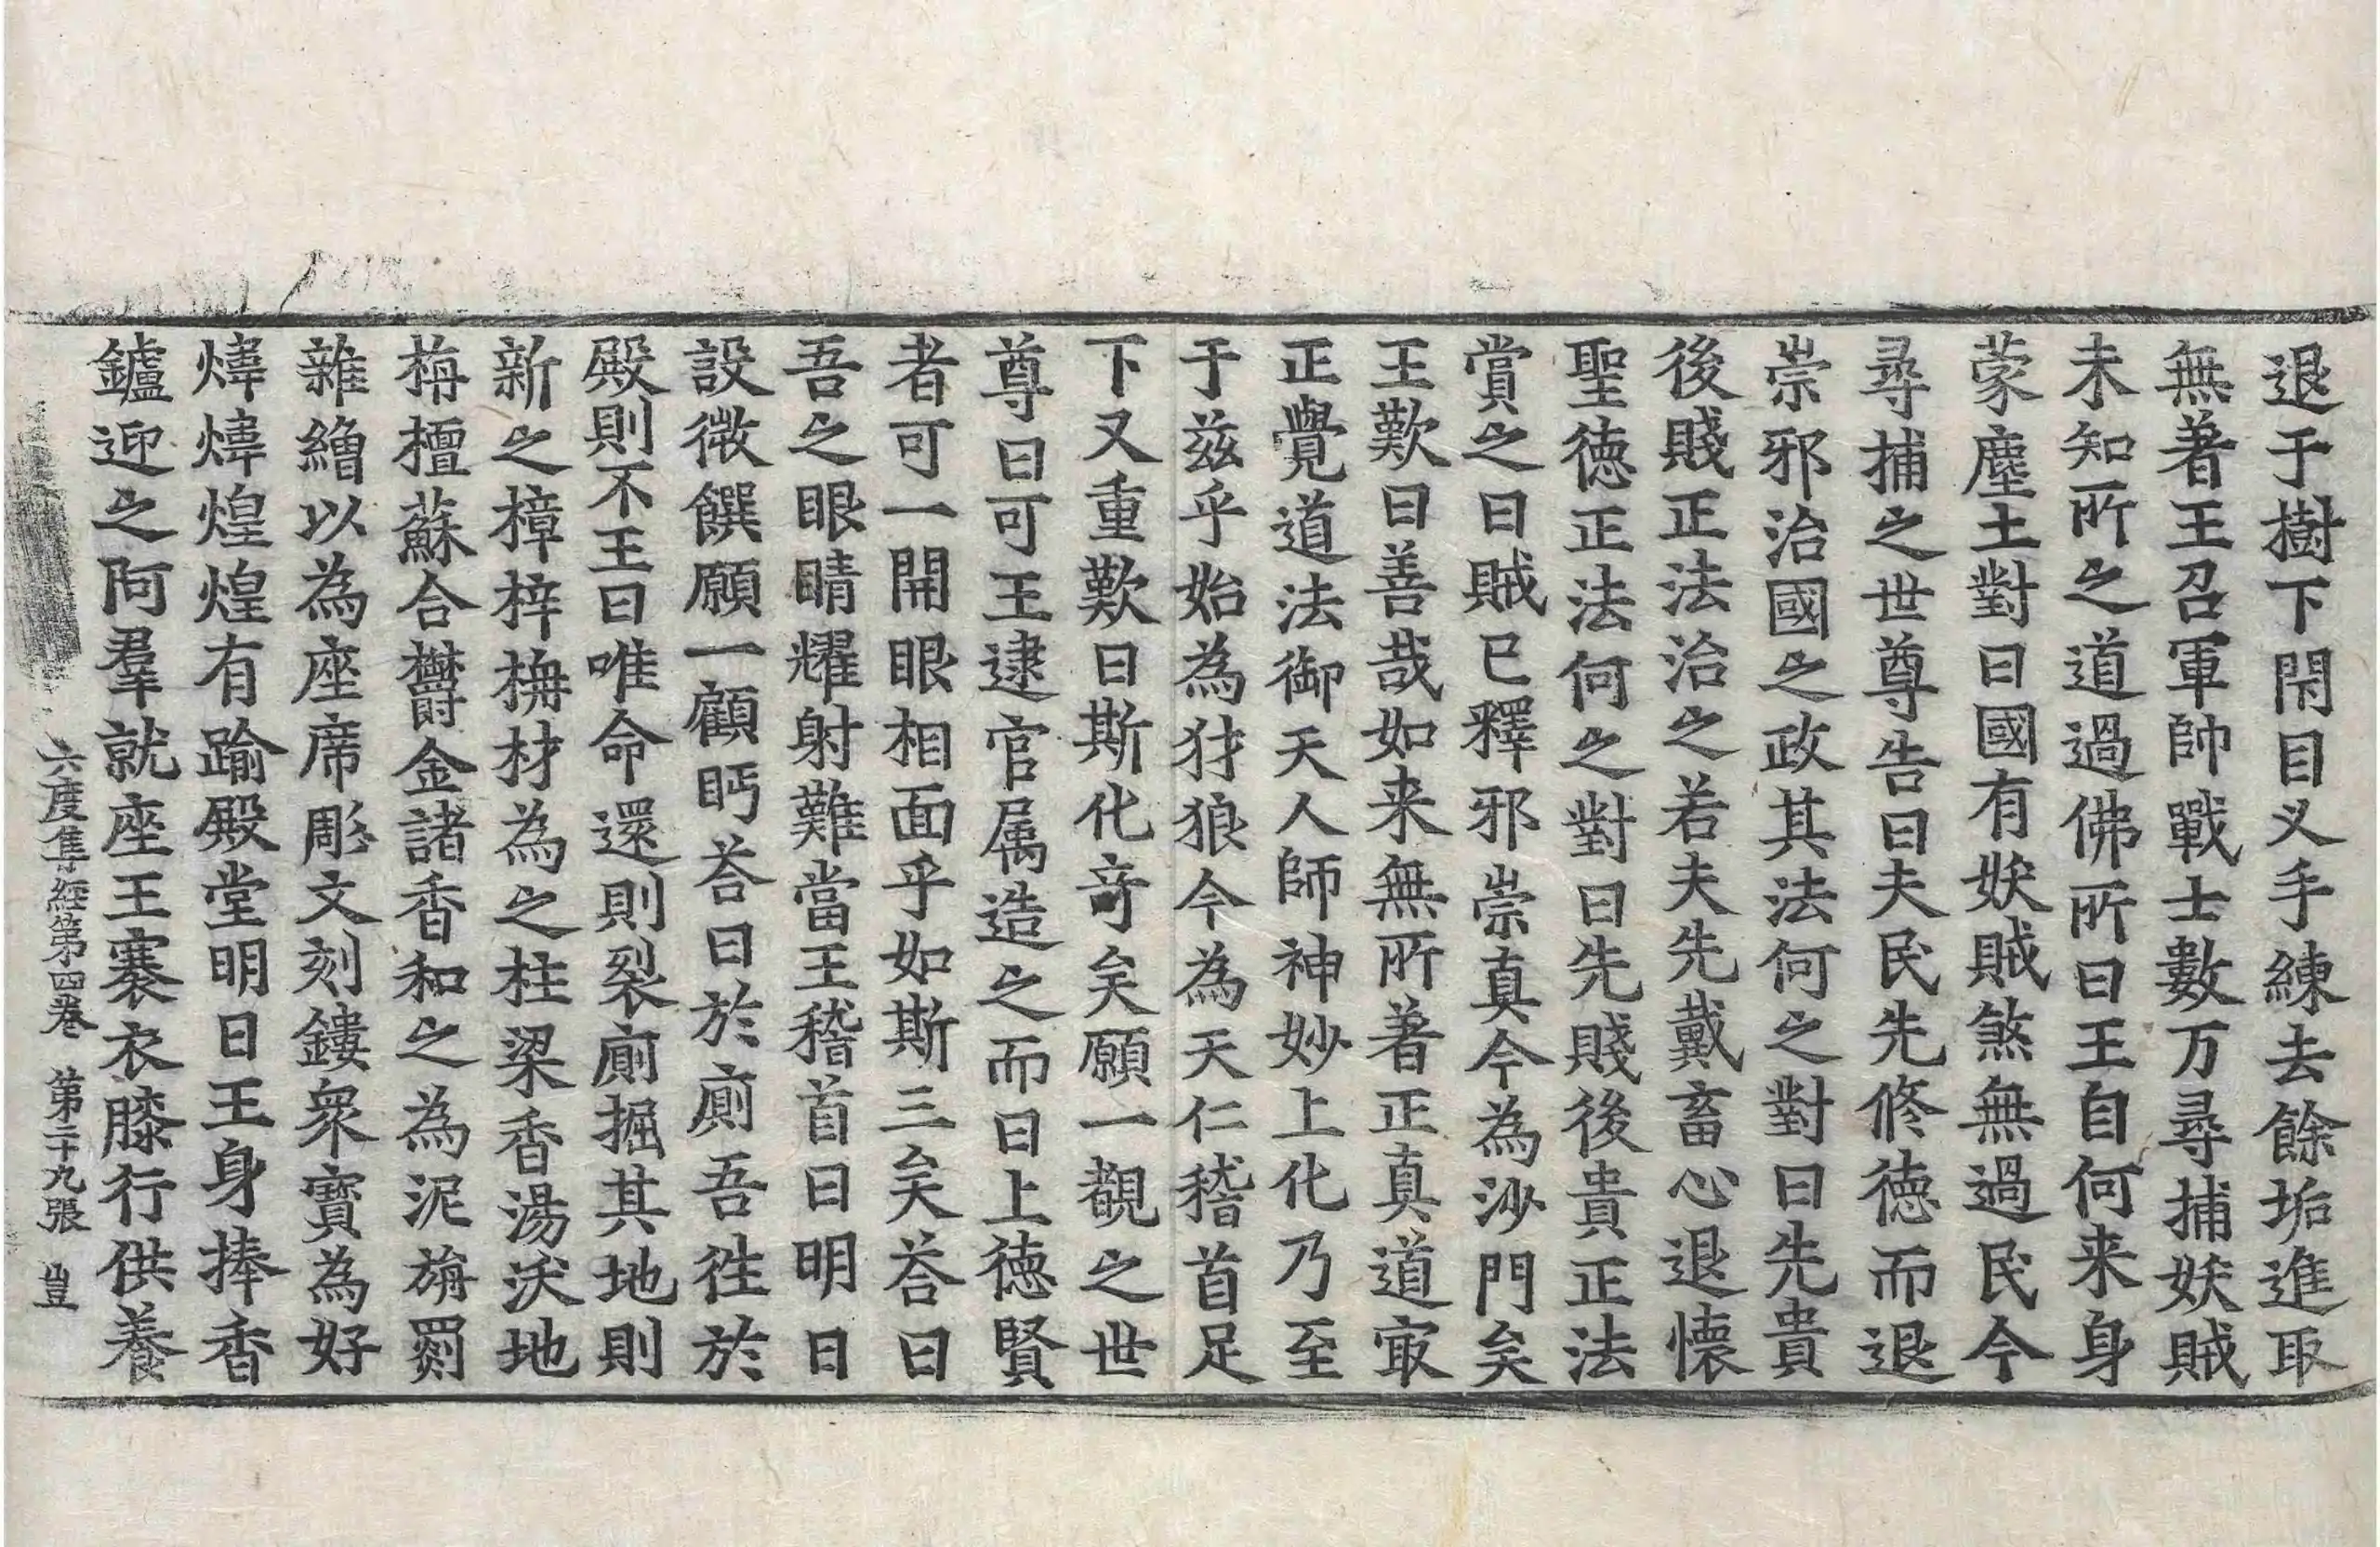 退于樹下閇目叉手練去餘垢進取
無著王召軍帥戰士數万尋捕妖賊
未知所之道過佛所曰王自何来身
蒙塵土對曰國有妖賊煞無過民今
尋捕之世尊告曰夫民先修德而退
崇邪治國之政其法何之對曰先貴
後賤正法治之若夫先戴畜心退懐
聖德正法何之對曰先賤後貴正法
賞之曰賊已釋邪崇真今為沙門矣
王歎曰善哉如来無所著正真道㝡
正覺道法御天人師神妙上化乃至
于兹乎始為犲狼今為天仁稽首足
下又重歎曰斯化竒矣願一覩之世
尊曰可王逮官属造之而曰上德賢
者可一開眼相面乎如斯三矣荅曰
吾之眼睛耀射難當王稽首曰明日
設微饌願一顧眄荅曰於廁吾徃於
殿則不王曰唯命還則裂廁掘其地則
新之樟梓栴材為之柱梁香湯沃地
栴檀蘇合欝金諸香和之為泥旃罽
雜繒以為座席彫文刻鏤衆寳為好
煒煒煌煌有踰殿堂明日王身捧香
鑪迎之阿羣就座王褰衣膝行供養
六度集經第四卷 第二十九張 豈